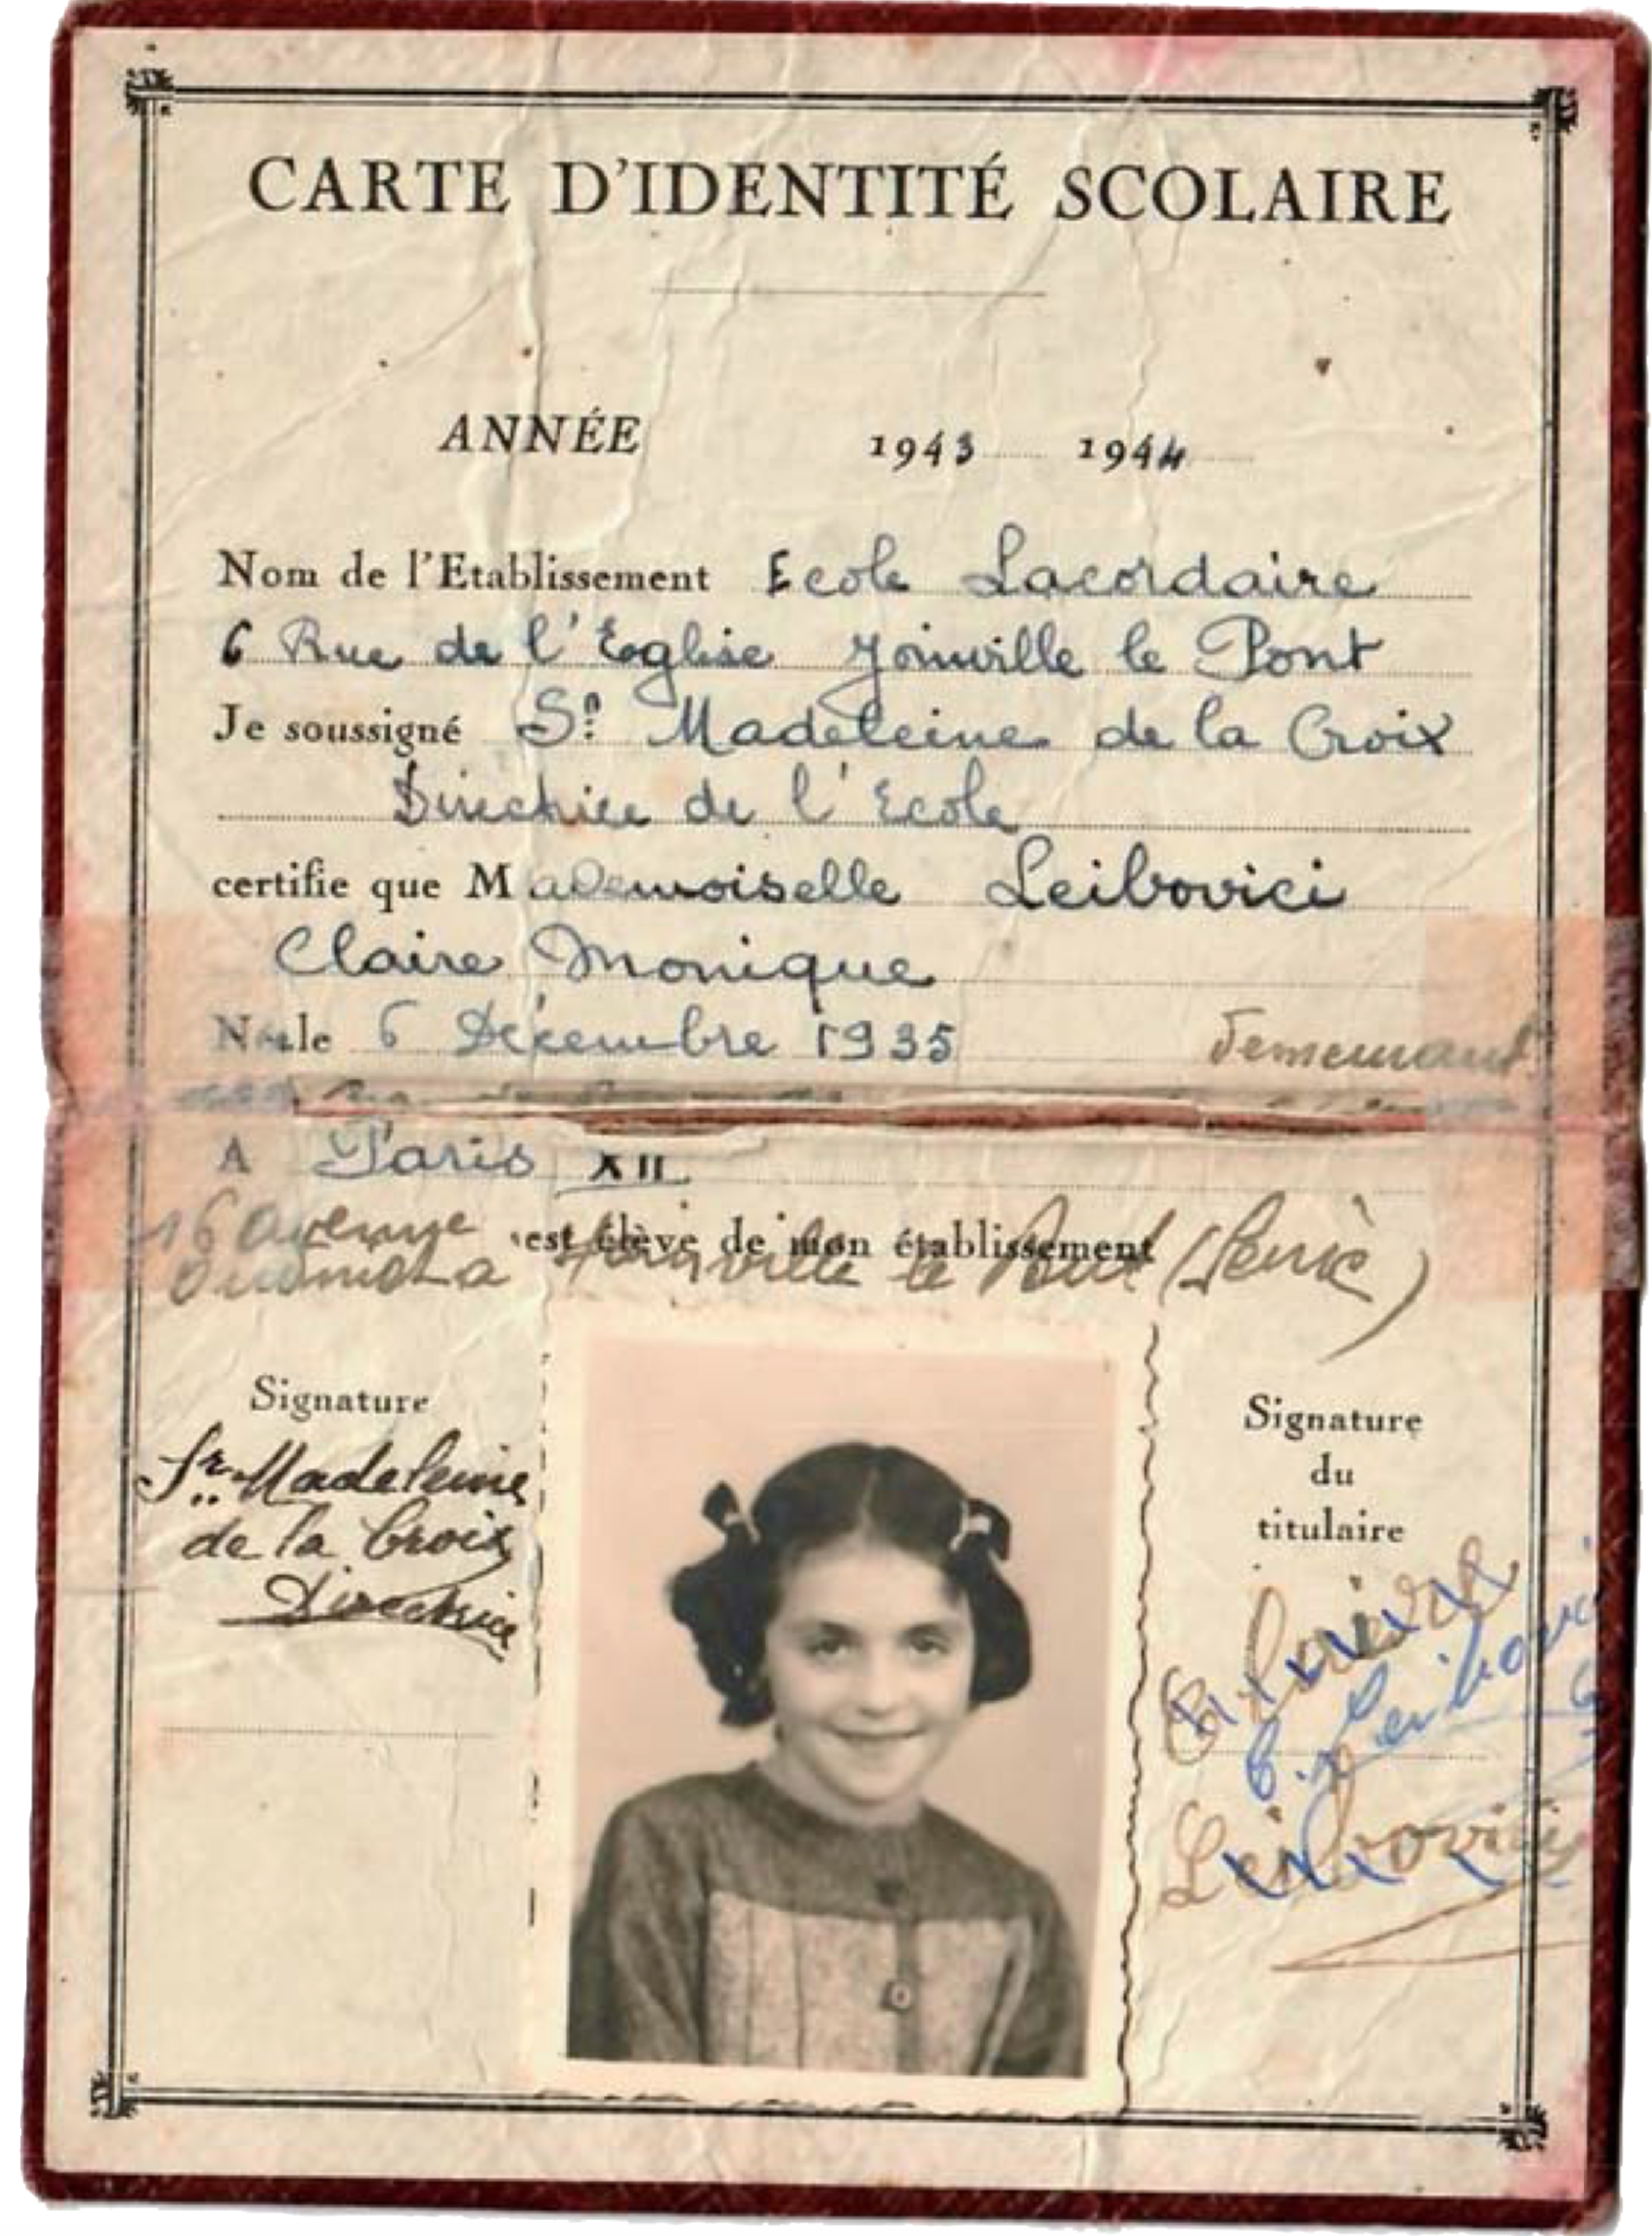 CARTE D'IDENTITÉ SCOLAIRE
ANNÉE 1943 1944
Nom de l'Etablissement Ecole Lacordaire
6 Rue de l'Eglise Joinville le Pont
Je soussigné Sr Madeleine de la Croix
Directrice de l'Ecole
certifie que Mademoiselle Leibovici
Claire Monique
Née le 6 Décembre 1935
A Paris XII
16 avenue
est élève de mon établissement
Joinville le Pont (Seine)
Signature
Sr. Madeleine
de la Croix
Directrice
Signature
du
titulaire
Claire
C. Leibovici
Leibovici